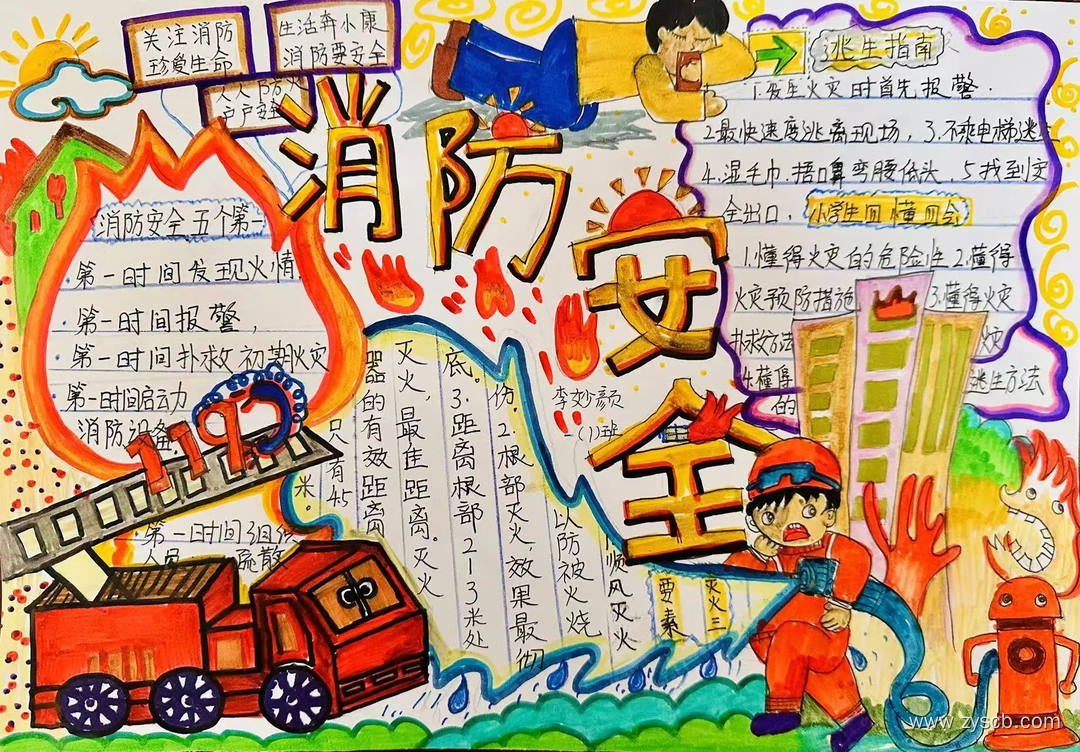 关注消防
珍爱生命
生活奔小康
消防要安全
人人防火
户户安全
消防安全
逃生指南
1.发生火灾时首先报警.
2.最快速度逃离现场,3.不乘电梯逃生
4.湿毛巾,捂口鼻弯腰低头.5找到安
全出口,
小学生四懂四会
1.懂得火灾的危险性2.懂得
火灾预防措施 3.懂得火灾
扑救方法 火灾
4.懂得 逃生方法
的
消防安全五个第一
·第一时间发现火情,
·第一时间报警,
·第一时间扑救初期火灾
第一时间启动力
消防设备
119
·第一时间组织
人员 疏散
李妙颜
一(1)班
灭火三
要素
顺风灭火
以防被火烧
份.2.根部灭火,效果最彻
底。3.距离根部2-3米处
灭火,最佳距离。灭火
器的有效距离
只有4.5
米。
www.zyscb.com